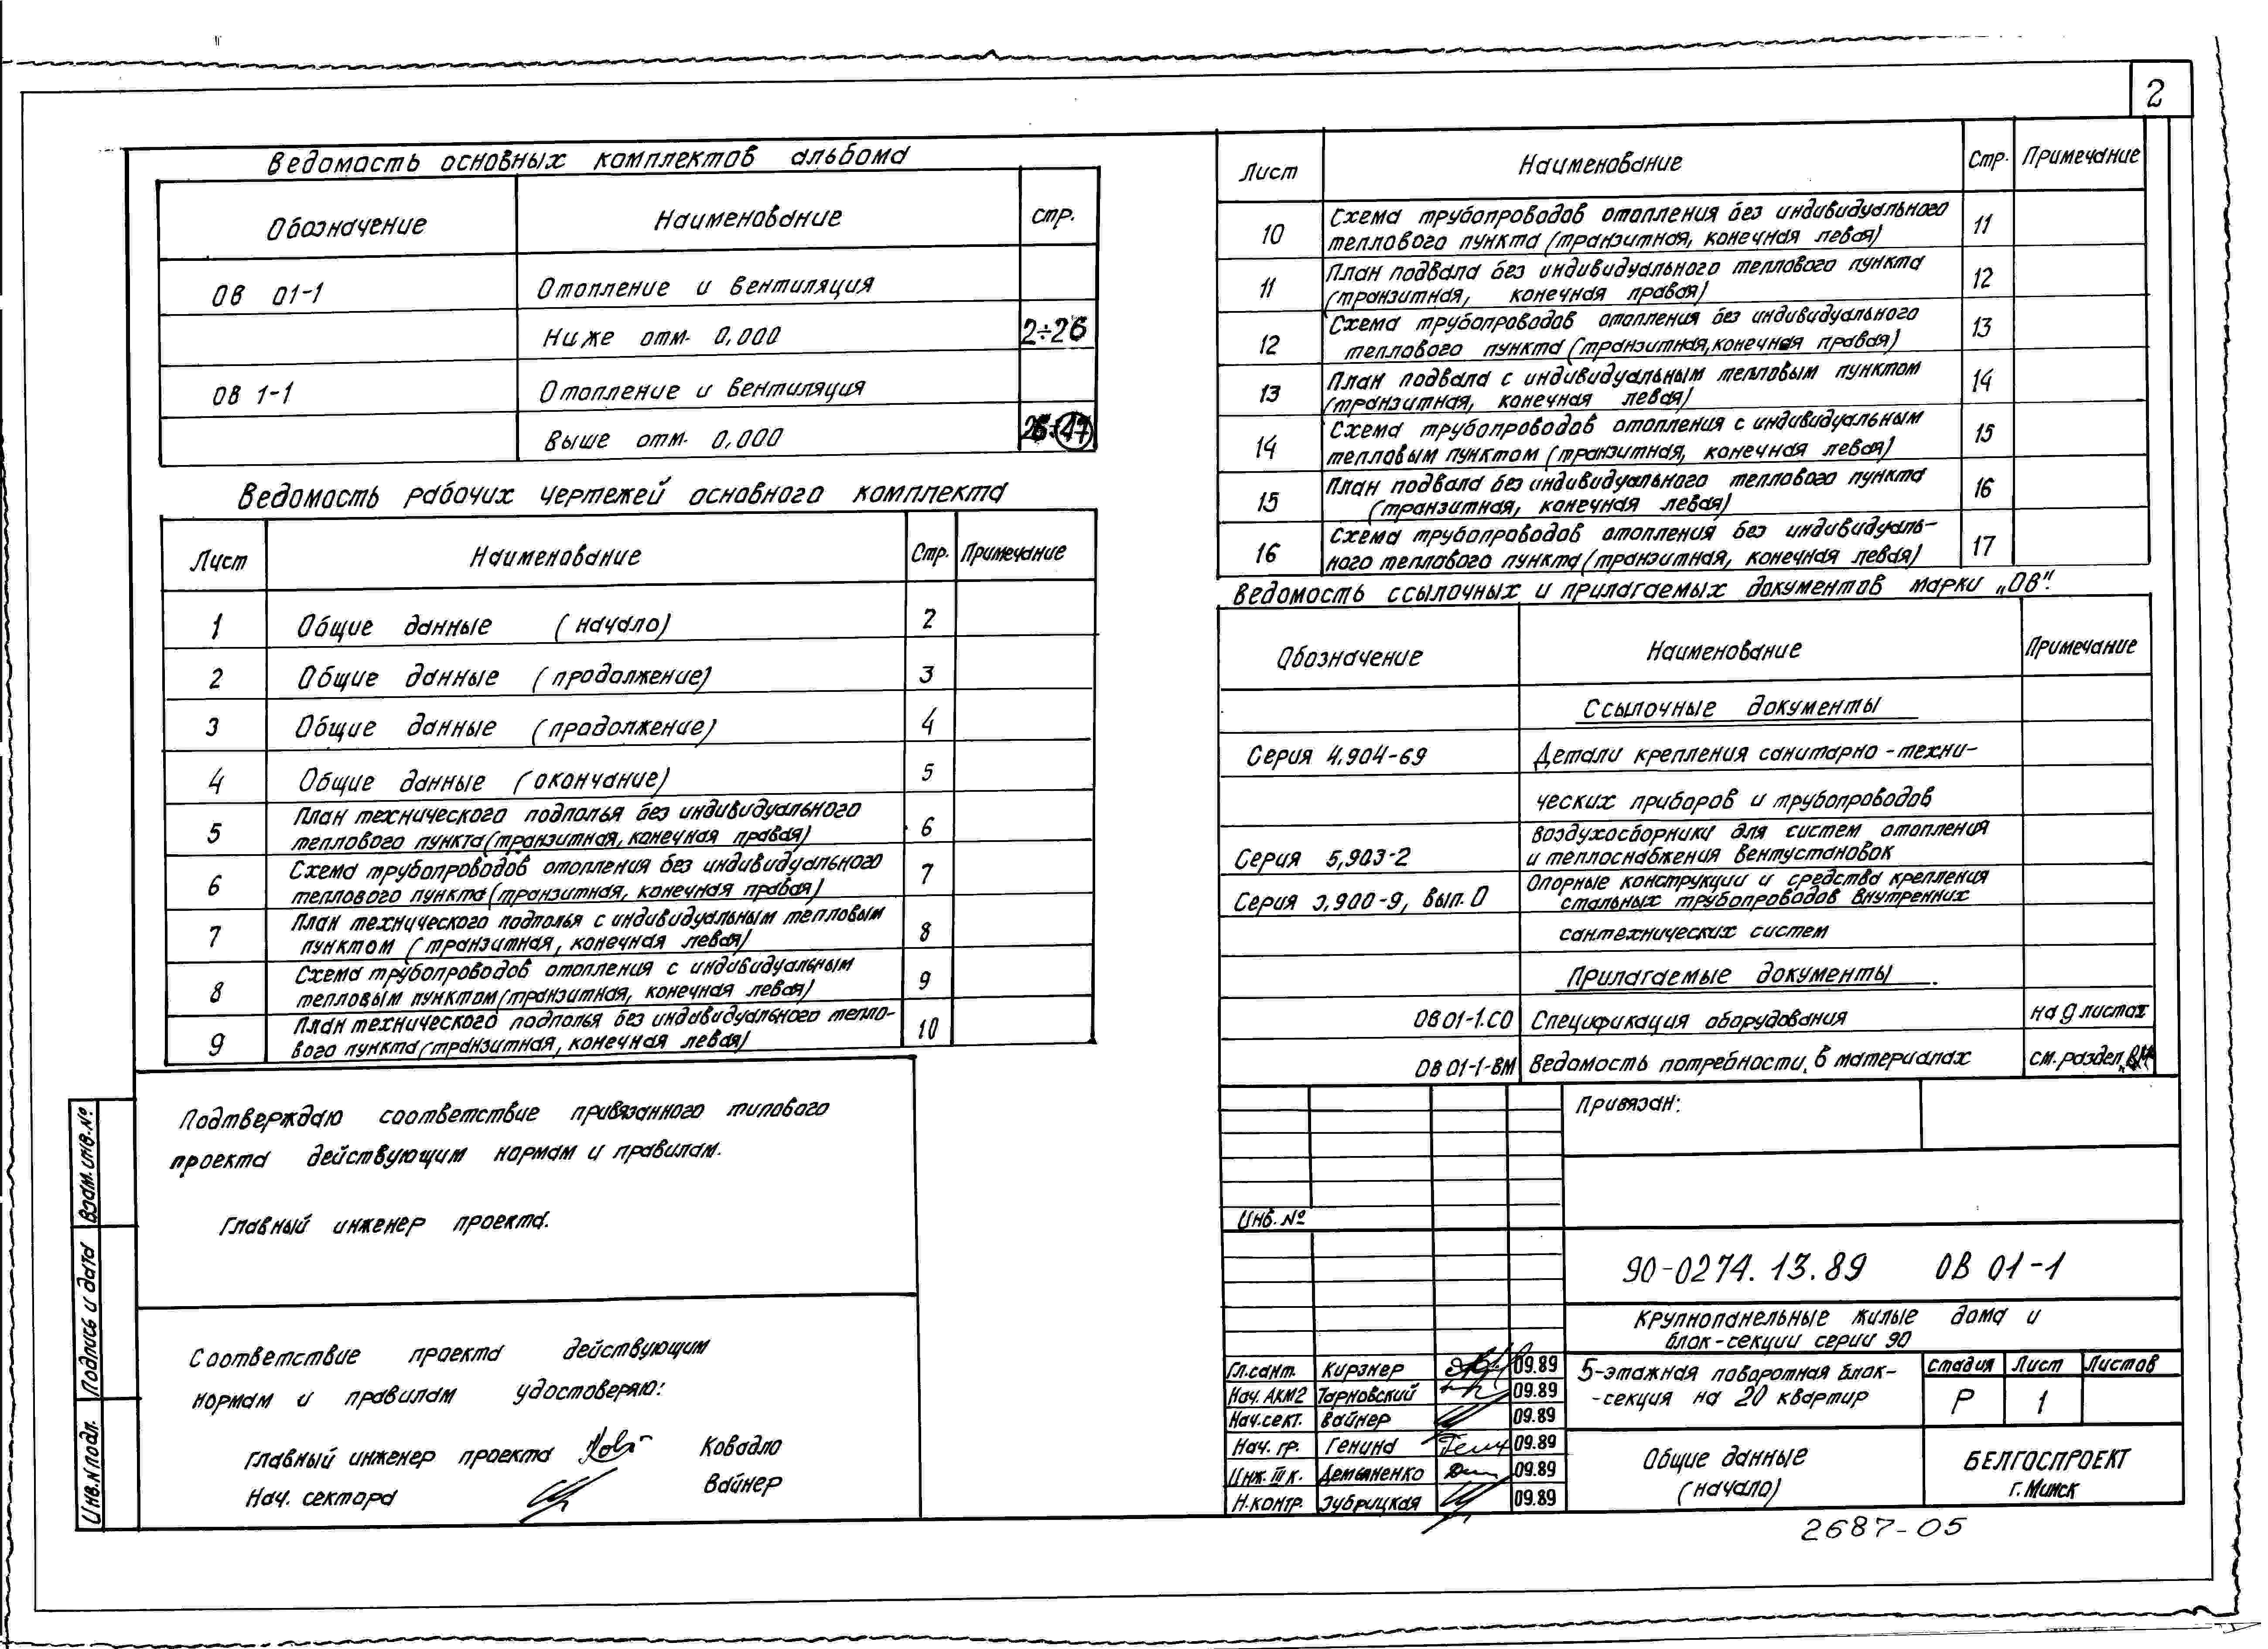 2
Ведомость основных комплектов альбома
Обозначение Наименование стр.
ОВ 01-1 Отопление и вентиляция
Ниже отм. 0,000 2÷26
ОВ 1-1 Отопление и вентиляция
Выше отм. 0,000
Ведомость рабочих чертежей основного комплекта
Лист Наименование Стр. Примечание
1 Общие данные (начало) 2
2 Общие данные (продолжение) 3
3 Общие данные (продолжение) 4
4 Общие данные (окончание) 5
5 План технического подполья без индивидуального 6
теплового пункта (транзитная, конечная правая)
6 Схема трубопроводов отопления без индивидуального 7
теплового пункта (транзитная, конечная правая)
7 План технического подполья с индивидуальным тепловым 8
пунктом (транзитная, конечная левая)
8 Схема трубопроводов отопления с индивидуальным 9
тепловым пунктом (транзитная, конечная левая)
9 План технического подполья без индивидуального тепло- 10
вого пункта (транзитная, конечная левая)
Подтверждаю соответствие привязанного типового
проекта действующим нормам и правилам.
Главный инженер проекта.
Соответствие проекта действующим
нормам и правилам удостоверяю:
Главный инженер проекта Ковадло
Нач. сектора Вайнер
Взам. инв. №
Подпись и дата
Инв. № подл.
Лист Наименование Стр. Примечание
10 Схема трубопроводов отопления без индивидуального 11
теплового пункта (транзитная, конечная левая)
11 План подвала без индивидуального теплового пункта 12
(транзитная, конечная правая)
12 Схема трубопроводов отопления без индивидуального 13
теплового пункта (транзитная, конечная правая)
13 План подвала с индивидуальным тепловым пунктом 14
(транзитная, конечная левая)
14 Схема трубопроводов отопления с индивидуальным 15
тепловым пунктом (транзитная, конечная левая)
15 План подвала без индивидуального теплового пункта 16
(транзитная, конечная левая)
16 Схема трубопроводов отопления без индивидуаль- 17
ного теплового пункта (транзитная, конечная левая)
Ведомость ссылочных и прилагаемых документов марки „ОВ".
Обозначение Наименование Примечание
Ссылочные документы
Серия 4.904-69 Детали крепления санитарно-техни-
ческих приборов и трубопроводов
Серия 5.903-2 Воздухосборники для систем отопления
и теплоснабжения вентустановок
Серия 3.900-9, вып. 0 Опорные конструкции и средства крепления
стальных трубопроводов внутренних
сантехнических систем
Прилагаемые документы
ОВ 01-1.СО Спецификация оборудования на 9 листах
ОВ 01-1-ВМ Ведомость потребности в материалах см. раздел „ВМ"
Привязан:
Инв. №
90-0274.13.89 ОВ 01-1
Крупнопанельные жилые дома и
блок-секции серии 90
Гл.сант. Кирзнер 09.89
Нач. АКМ2 Тарновский 09.89
Нач.сект. Вайнер 09.89
Нач. гр. Генина 09.89
Инж. III к. Демьяненко 09.89
Н.контр. Зубрицкая 09.89
5-этажная поворотная блок-
-секция на 20 квартир
Стадия Лист Листов
Р 1
Общие данные
(начало)
БЕЛГОСПРОЕКТ
г. Минск
2687-05